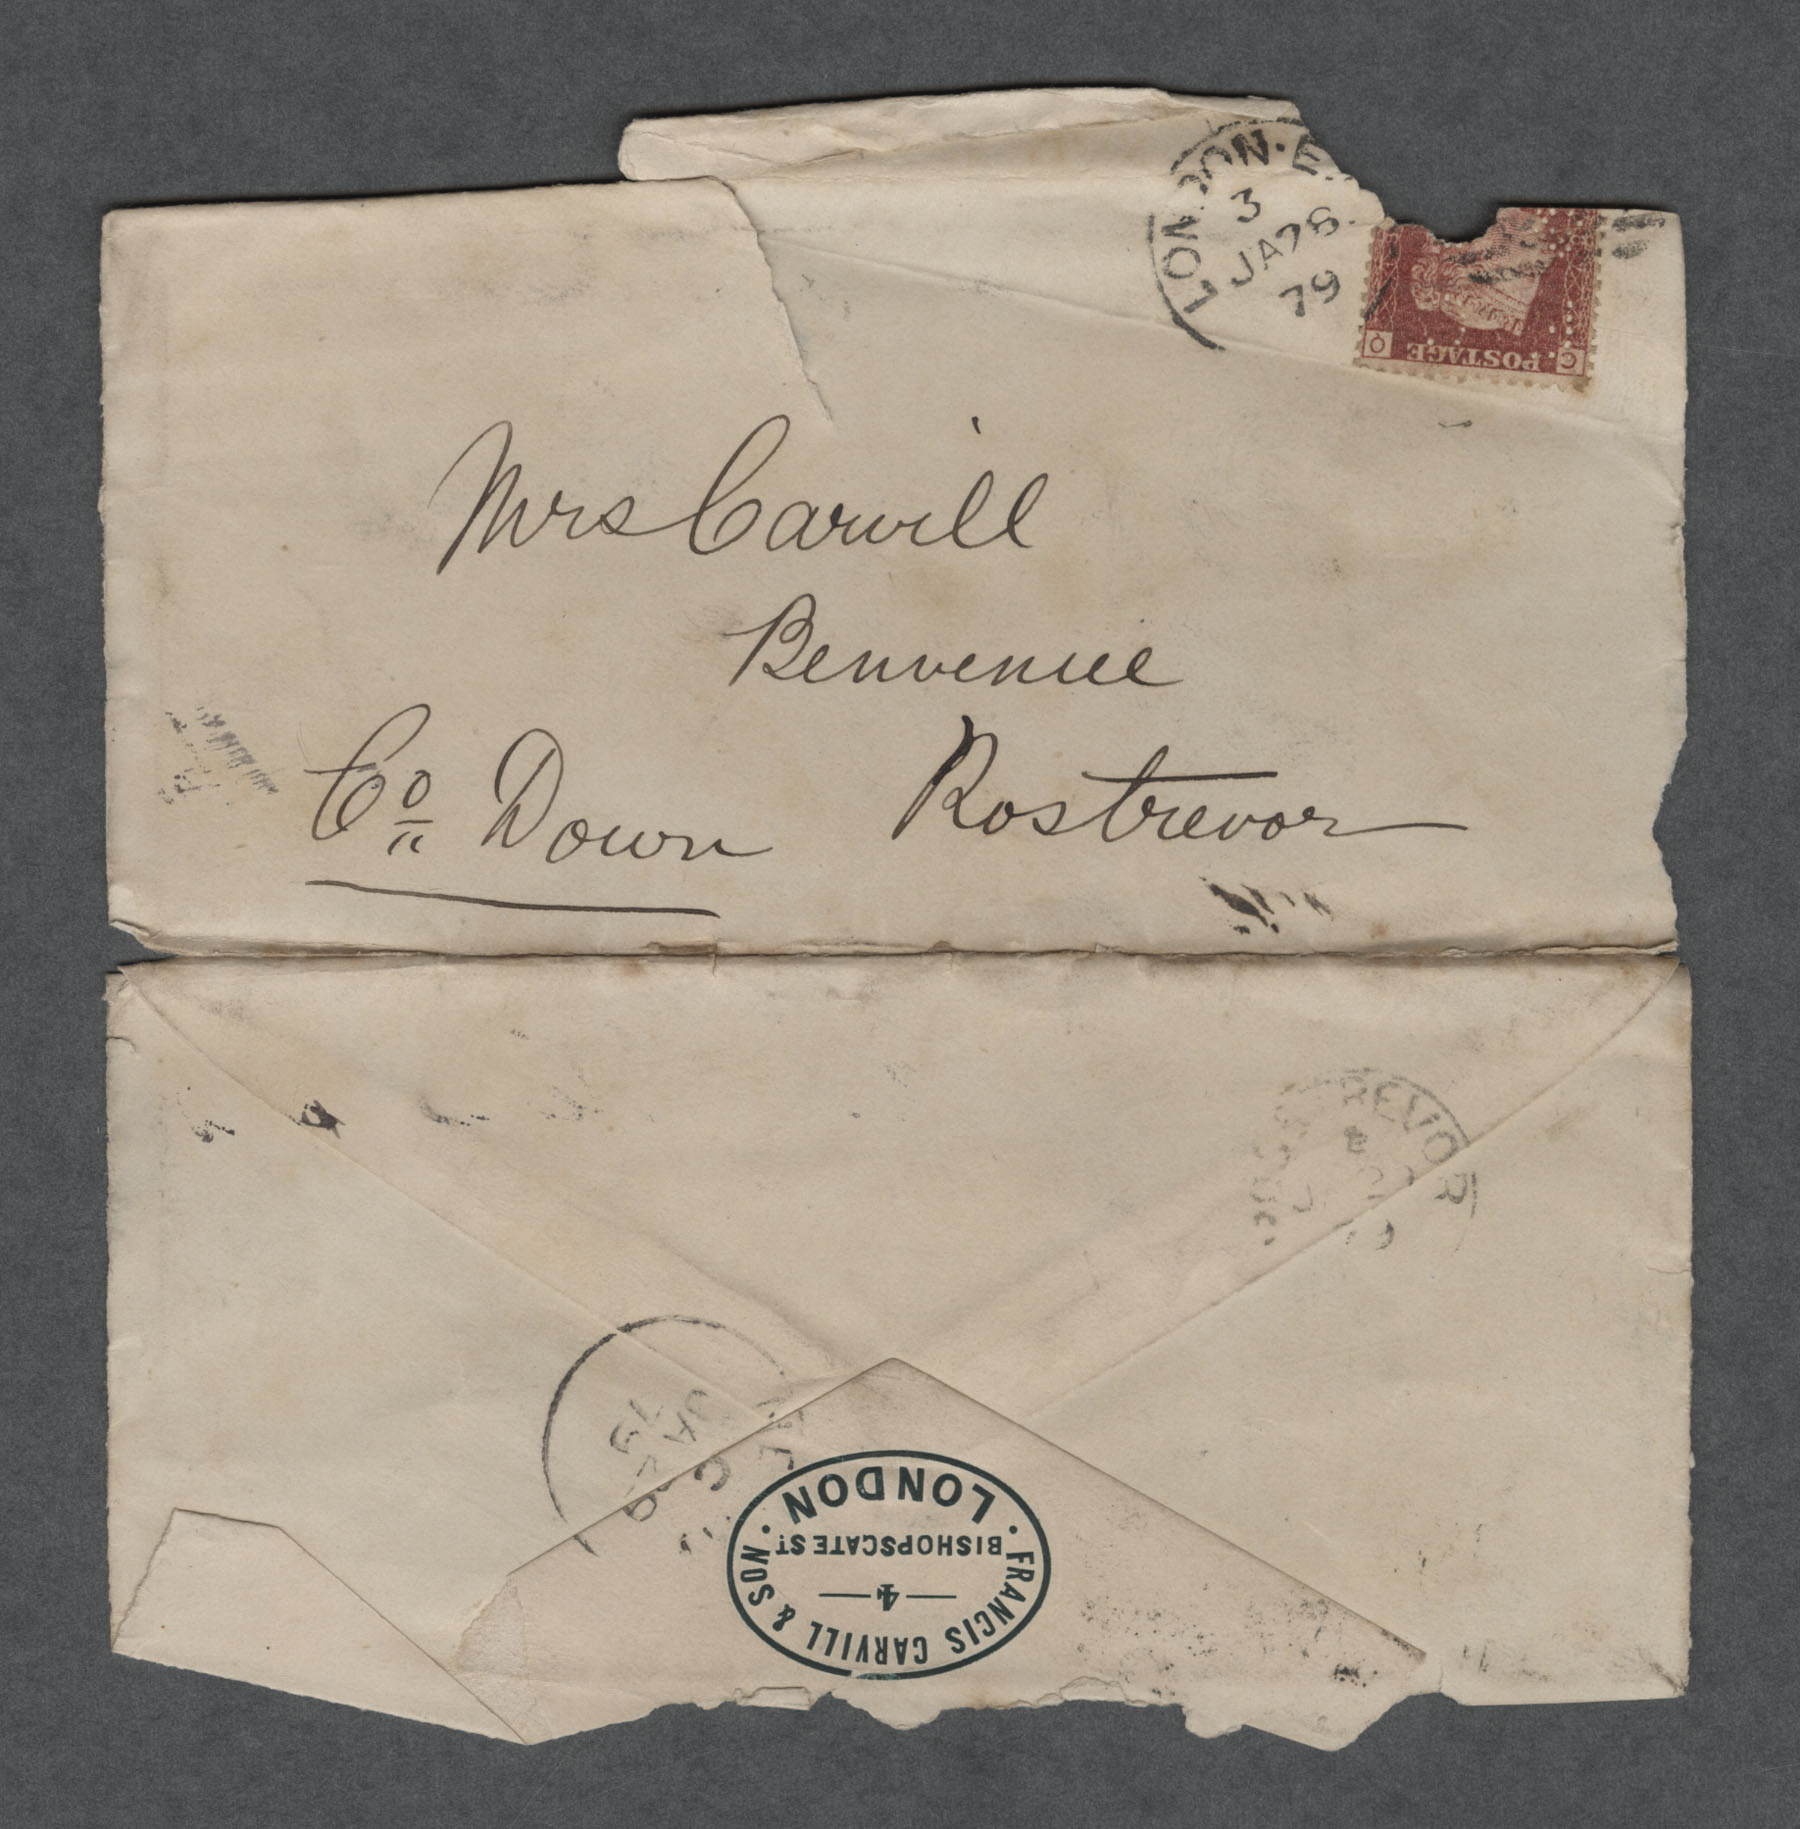 LONDON · E.
3
JA 28
79
C POSTAGE Q
Mrs Carvill
Benvenue
Rostrevor
Co Down
ROSTREVOR
JA
79
· FRANCIS CARVILL & SON ·
4
BISHOPSGATE ST
LONDON